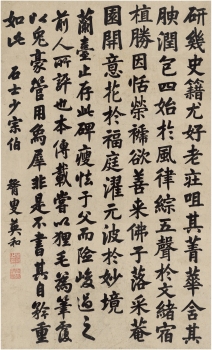 研几史籍尤好老莊咀其菁華含其
腴潤包四始於風律綜五聲於文緒宿
植勝因恬榮褫欲善来佛子落采菴
園開意花於福庭濯元波於妙境
蘭臺止存此碑瘦怯于父而險峻過之
前人所許也本傳載嘗以狸毛為筆覆
以兔豪管用烏犀非是不書其自矜重
如此 石士少宗伯
膂叟英和